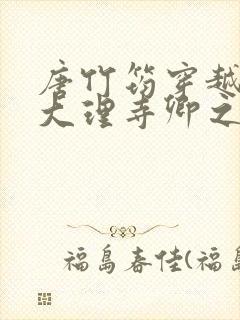 唐竹筠穿越
大理寺卿之
福島春佳(福島